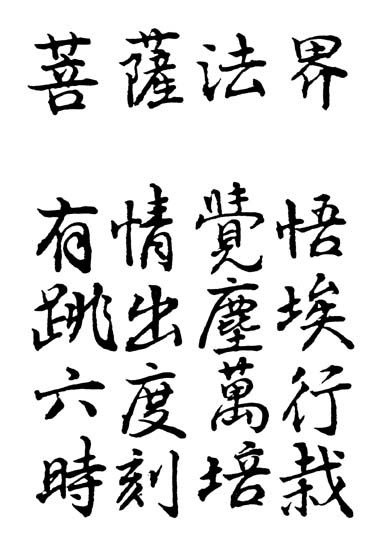 菩薩法界
有情覺悟
跳出塵埃
六度萬行
時刻培栽